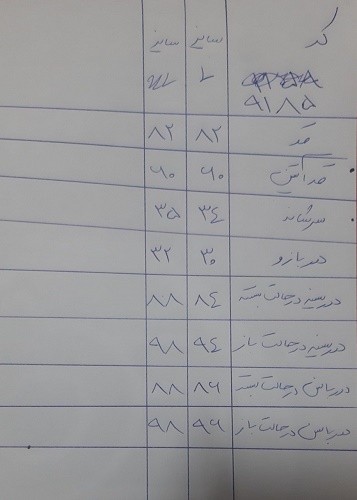 کد سایز سایز
۹۱۸۵ L XL
قد ۸۲ ۸۲
قد آستین ۶۰ ۶۰
سرشانه ۳۴ ۳۵
دور بازو ۳۰ ۳۲
دور سینه در حالت بسته ۸۴ ۸۸
دور سینه در حالت باز ۹۴ ۹۸
دور باسن در حالت بسته ۸۶ ۸۸
دور باسن در حالت باز ۹۶ ۹۸